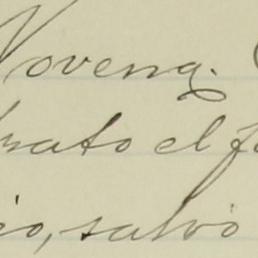 Novena.
trato el
io, salvo